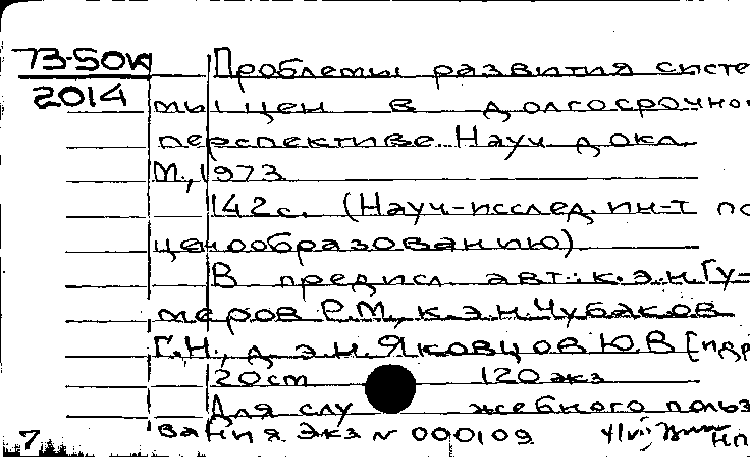 73-50к
2014
Проблемы развития систе
мы цен в долгосрочно
перспективе. Науч. докл.
М., 1973
142с. (Науч-исслед. ин-т по
ценообразованию)
В предисл. авт.: к.э.н. Гу-
меров Р.М., к.э.н. Чубаков
Г.Н., д.э.н. Яковцов Ю.В [пдр
20 cm 120 экз
Для слу жебного польз
вания. Экз N 000109
7 нп